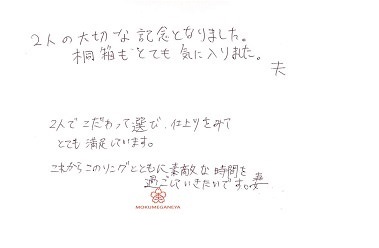 2人の大切な記念となりました。
桐箱もとても気に入りました。
夫
2人でこだわって選び、仕上りをみて
とても満足しています。
これからこのリングとともに素敵な時間を
過ごしていきたいです。妻
MOKUMEGANEYA